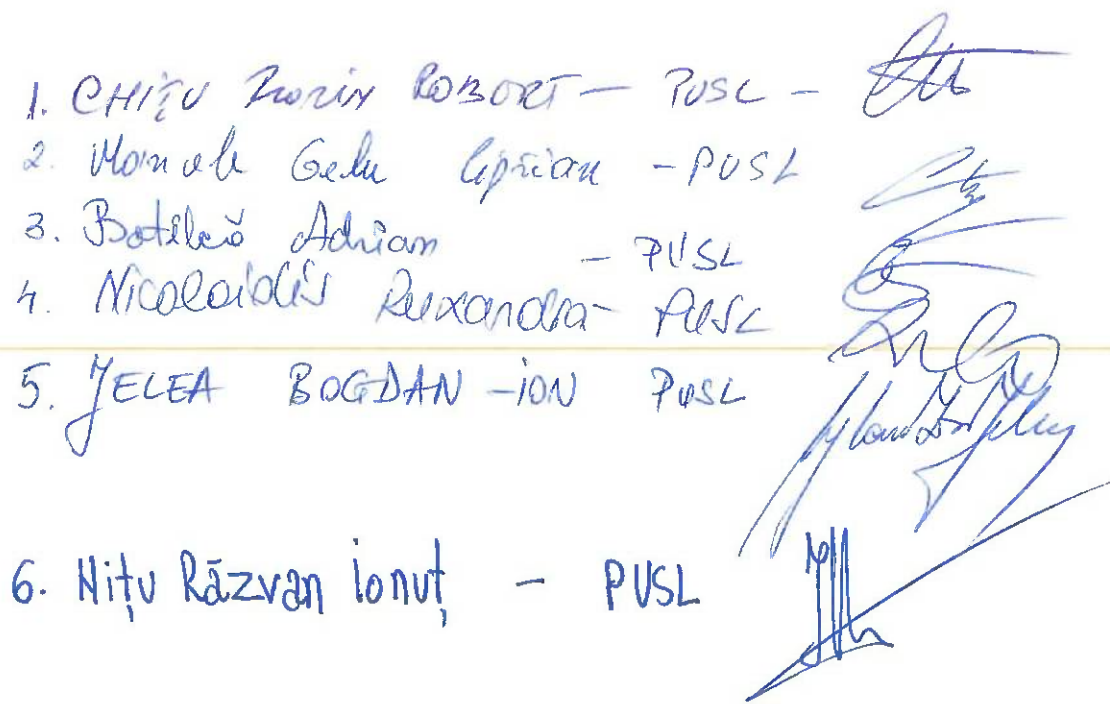 1. CHIȚU Florin ROBERT – PUSL –
2. Manole Gelu Ciprian – PUSL
3. Botilcă Adrian – PUSL
4. Nicolaidis Ruxandra – PUSL
5. JELEA BOGDAN – ION PUSL
6. Nițu Răzvan Ionuț – PUSL